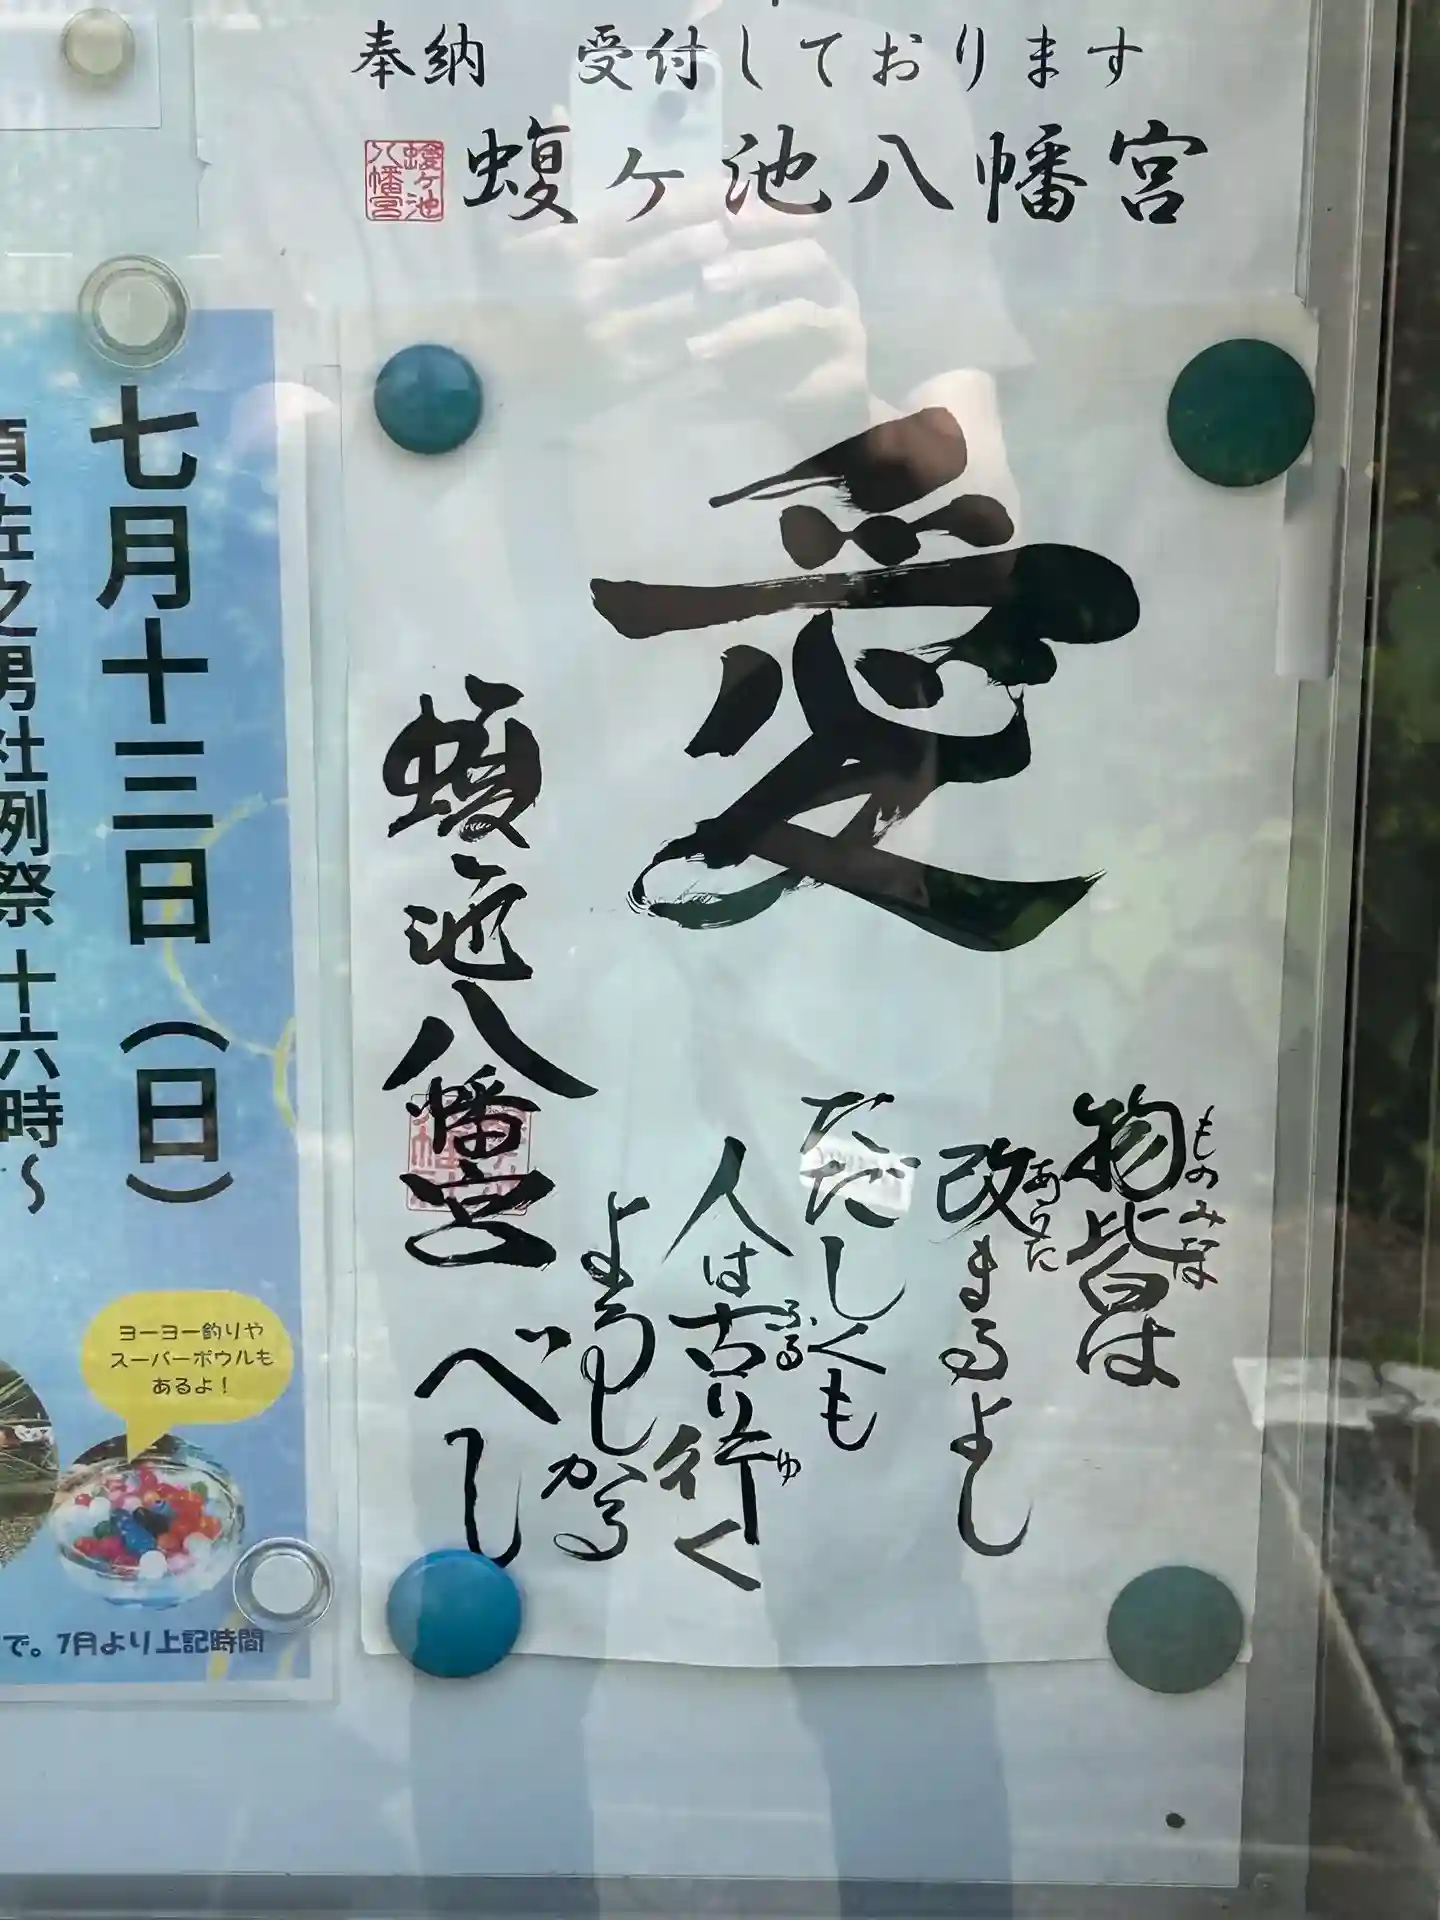 奉納 受付しております
蝮ヶ池八幡宮
蝮ヶ池八幡宮
愛
物皆は
ものみな
改まるよし
あらた
ただしくも
人は古り行く
ふる
ゆ
よろしかる
べし
蝮池八幡宮
七月十三日(日)
須佐之男社例祭 十六時~
ヨーヨー釣りや
スーパーボウルも
あるよ!
で。7月より上記時間